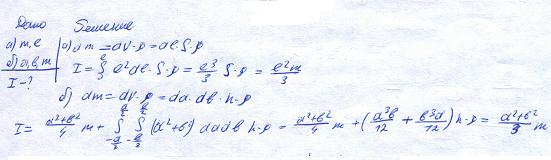 Дано Решение
а) m, ℓ а) dm = dV·ρ = dℓ·S·ρ
б) a, b, m I = ∫₀^ℓ ℓ² dℓ·S·ρ = ℓ³/3 S·ρ = ℓ²m/3
I - ?
б) dm = dV·ρ = da·db·h·ρ
I = (a²+b²)/4 m + ∫_{-a/2}^{a/2} ∫_{-b/2}^{b/2} (a²+b²) da db h·ρ = (a²+b²)/4 m + (a³b/12 + b³a/12) h·ρ = (a²+b²)/3 m